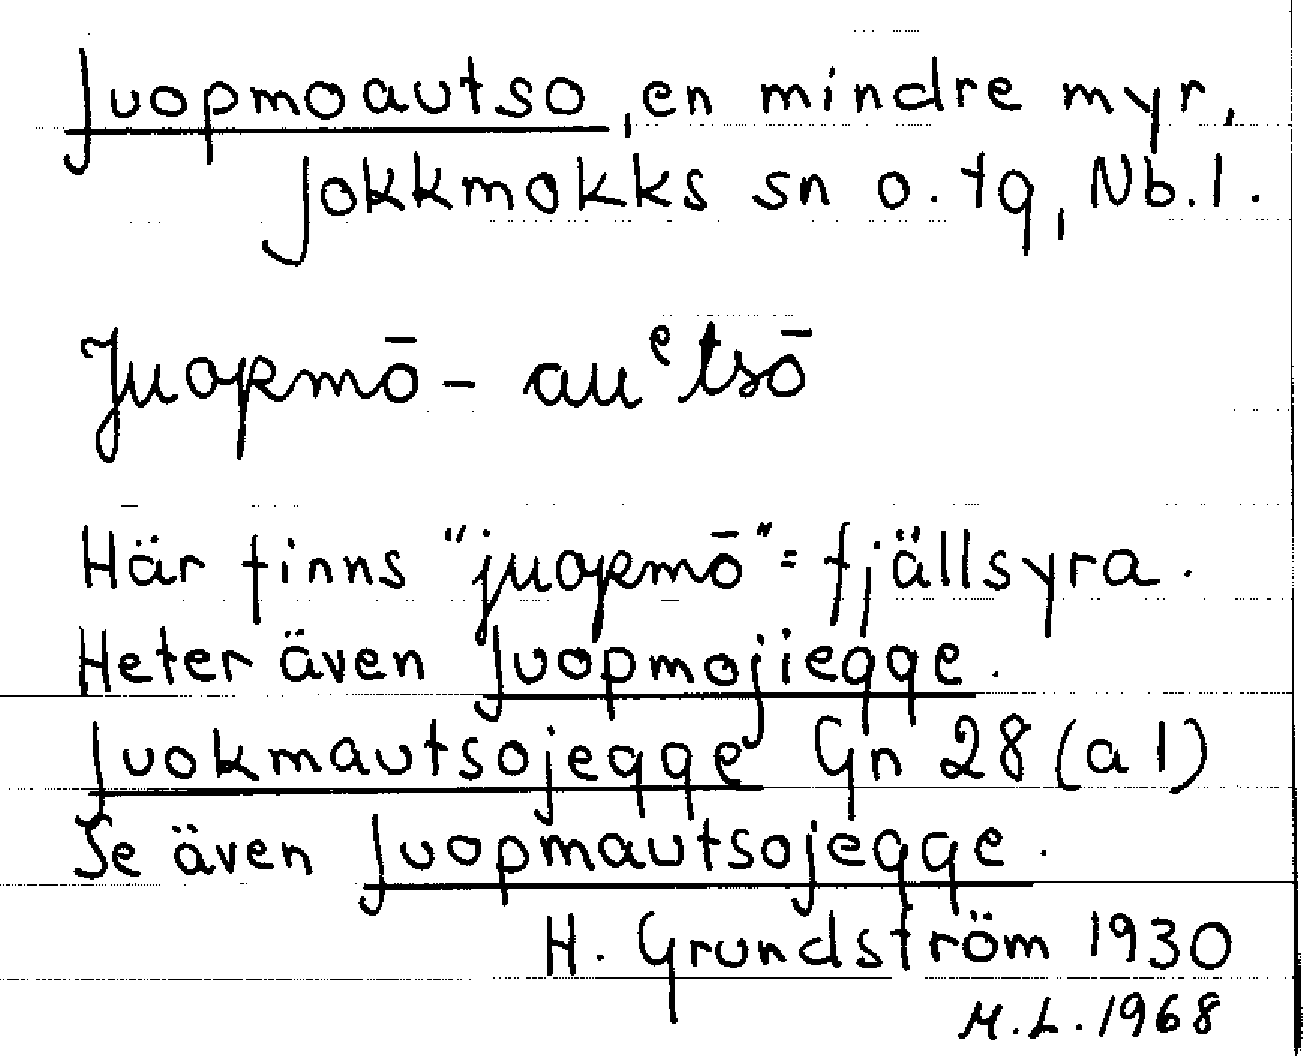 Juopmoautso, en mindre myr,
Jokkmokks sn o. tg, Nb.l.
Juopmō - auᵉtsō
Här finns "juopmō" = fjällsyra.
Heter även Juopmojiegge.
Juokmautsojegge Gn 28 (a l)
Se även Juopmautsojegge.
H. Grundström 1930
M.L. 1968